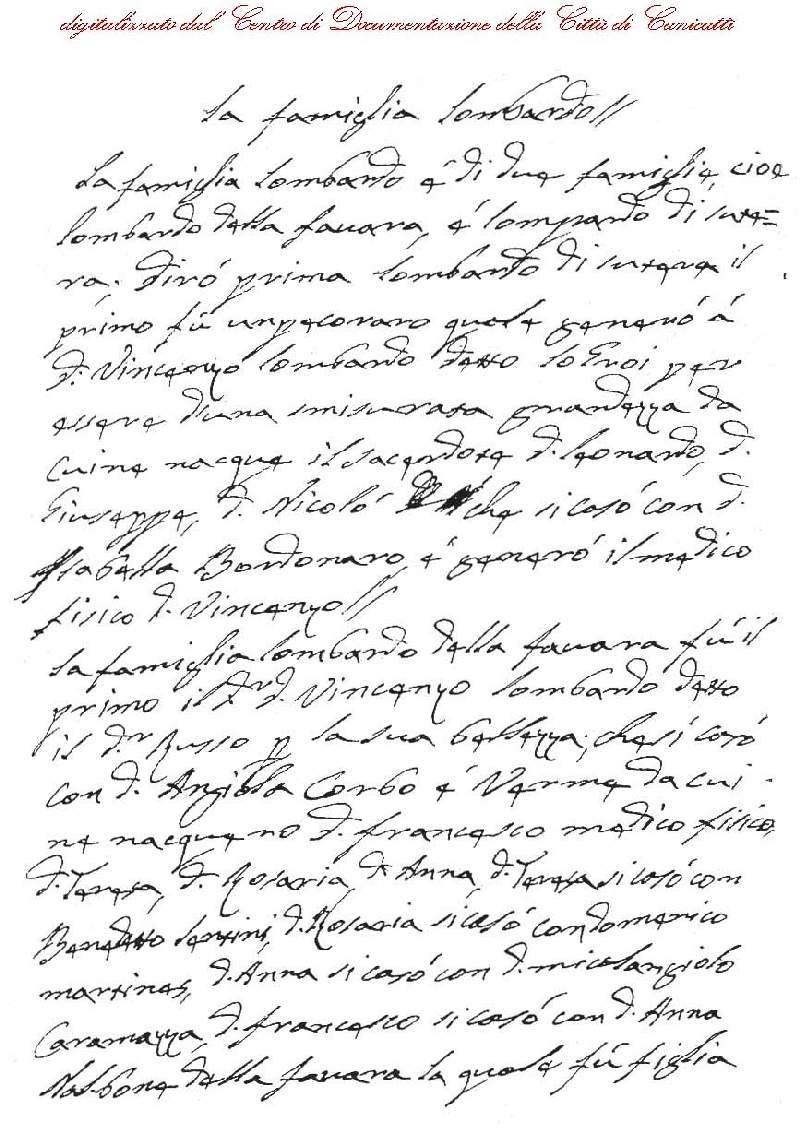 digitalizzato dal Centro di Documentazione della Città di Canicattì
La famiglia lombardo//
La famiglia lombardo é di due famiglie cioe
lombardo della favara, é lompardo di sute=
ra. dirò prima lombardo di sutera il
primo fú un pecoraro quale generó á
d. Vincenzo lombardo detto lo Eroi per
essere d'una smisurata grandezza da
cui ne nacque il sacerdote d. leonardo, d.
Giuseppe, d. Nicoló che si casó con d.
Isabella Bordonaro, é generó il medico
fisico d. Vincenzo//
La famiglia lombardo della favara fú il
primo il Dr. d. Vincenzo lombardo detto
il dr Russo p la sua bellezza, che si casó
con d. Angiola Corbo é Verme da cui
ne nacquero d. francesco medico fisico,
d. Teresa, d. Rosaria, d. Anna, d. Teresa si casó con
Benedetto Sentini, d. Rosaria si casó con domenico
martines, d. Anna si casó con d. micolangiolo
Caramazza, d. francesco si casó con d. Anna
della favara la quale fú figlia